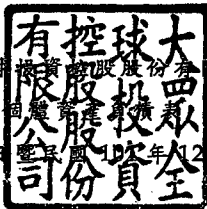 大眾全
球投資
控股股份
有限公司
投資控股股份有
個體資產負債
民國 年12